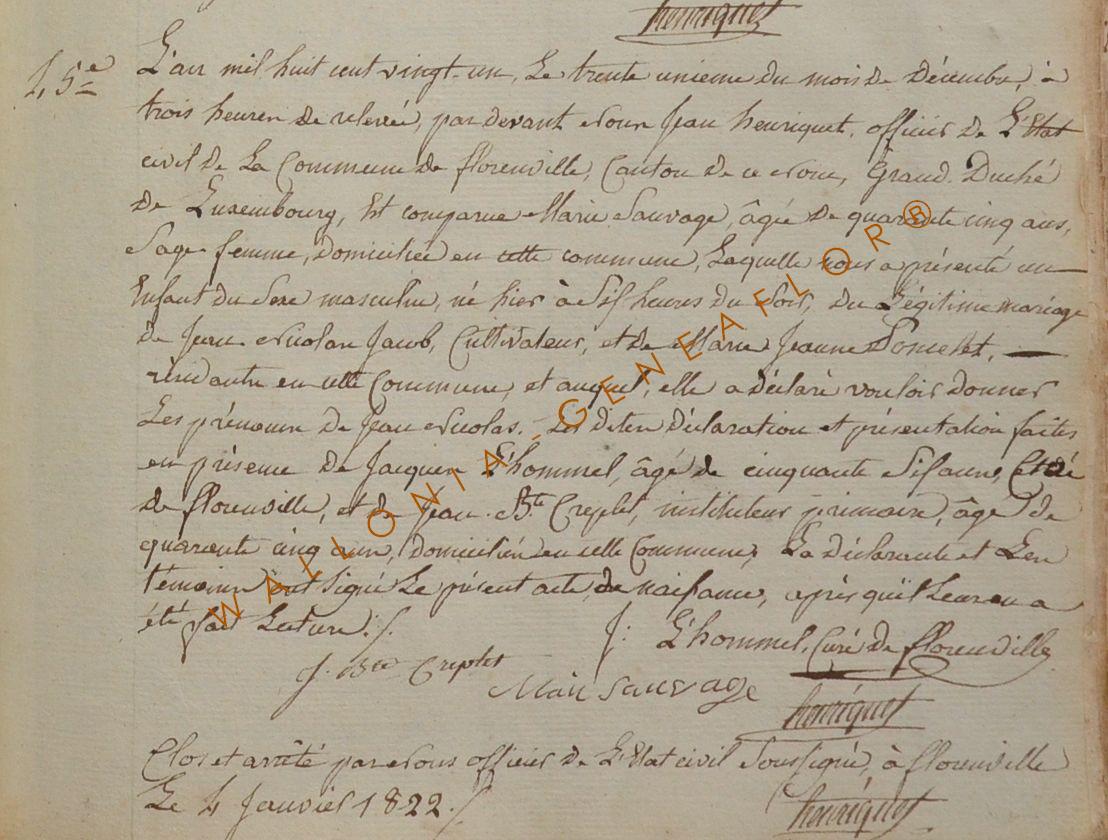 henriquet
45e
L'an mil huit cent vingt-un, Le trente unieme du mois de décembre, à
trois heures de relevée, par devant Nous Jean henriquet, officier de L'Etat
civil de La Commune de florenville, Canton de ce Nom, Grand Duché
de Luxembourg, Est comparue Marie Sauvage, âgée de quarante cinq ans,
Sage femme, domiciliée en cette commune, Laquelle nous a présenté un
Enfant du Sexe masculin, né hier à Six heures du Soir, du Légitime mariage
de Jean Nicolas Jacob, Cultivateur, et de Marie Jeanne
résidants en cette Commune, et auquel, elle a déclaré vouloir donner
Les prénoms de Jean Nicolas. Les dites déclaration et présentation faites
en présence de Jacques L'hommel, âgé de cinquante Six ans, Curé
de florenville, et de Jean Bte Creplet, instituteur primaire, âgé de
quarante cinq ans, domiciliés en cette Commune, La déclarante et Les
témoins ont signé Le présent acte de naissance, après qu'il Leur en a
été fait Lecture ./.
J: L'hommel, Curé de florenville
J. Bte Creplet
Mari sauvage
henriquet
Clos et arrêté par Nous officier de L'Etat civil Soussigné, à florenville
Le 4 Janvier 1822 ./
henriquet
WALLONIA-GENEAFLOR®